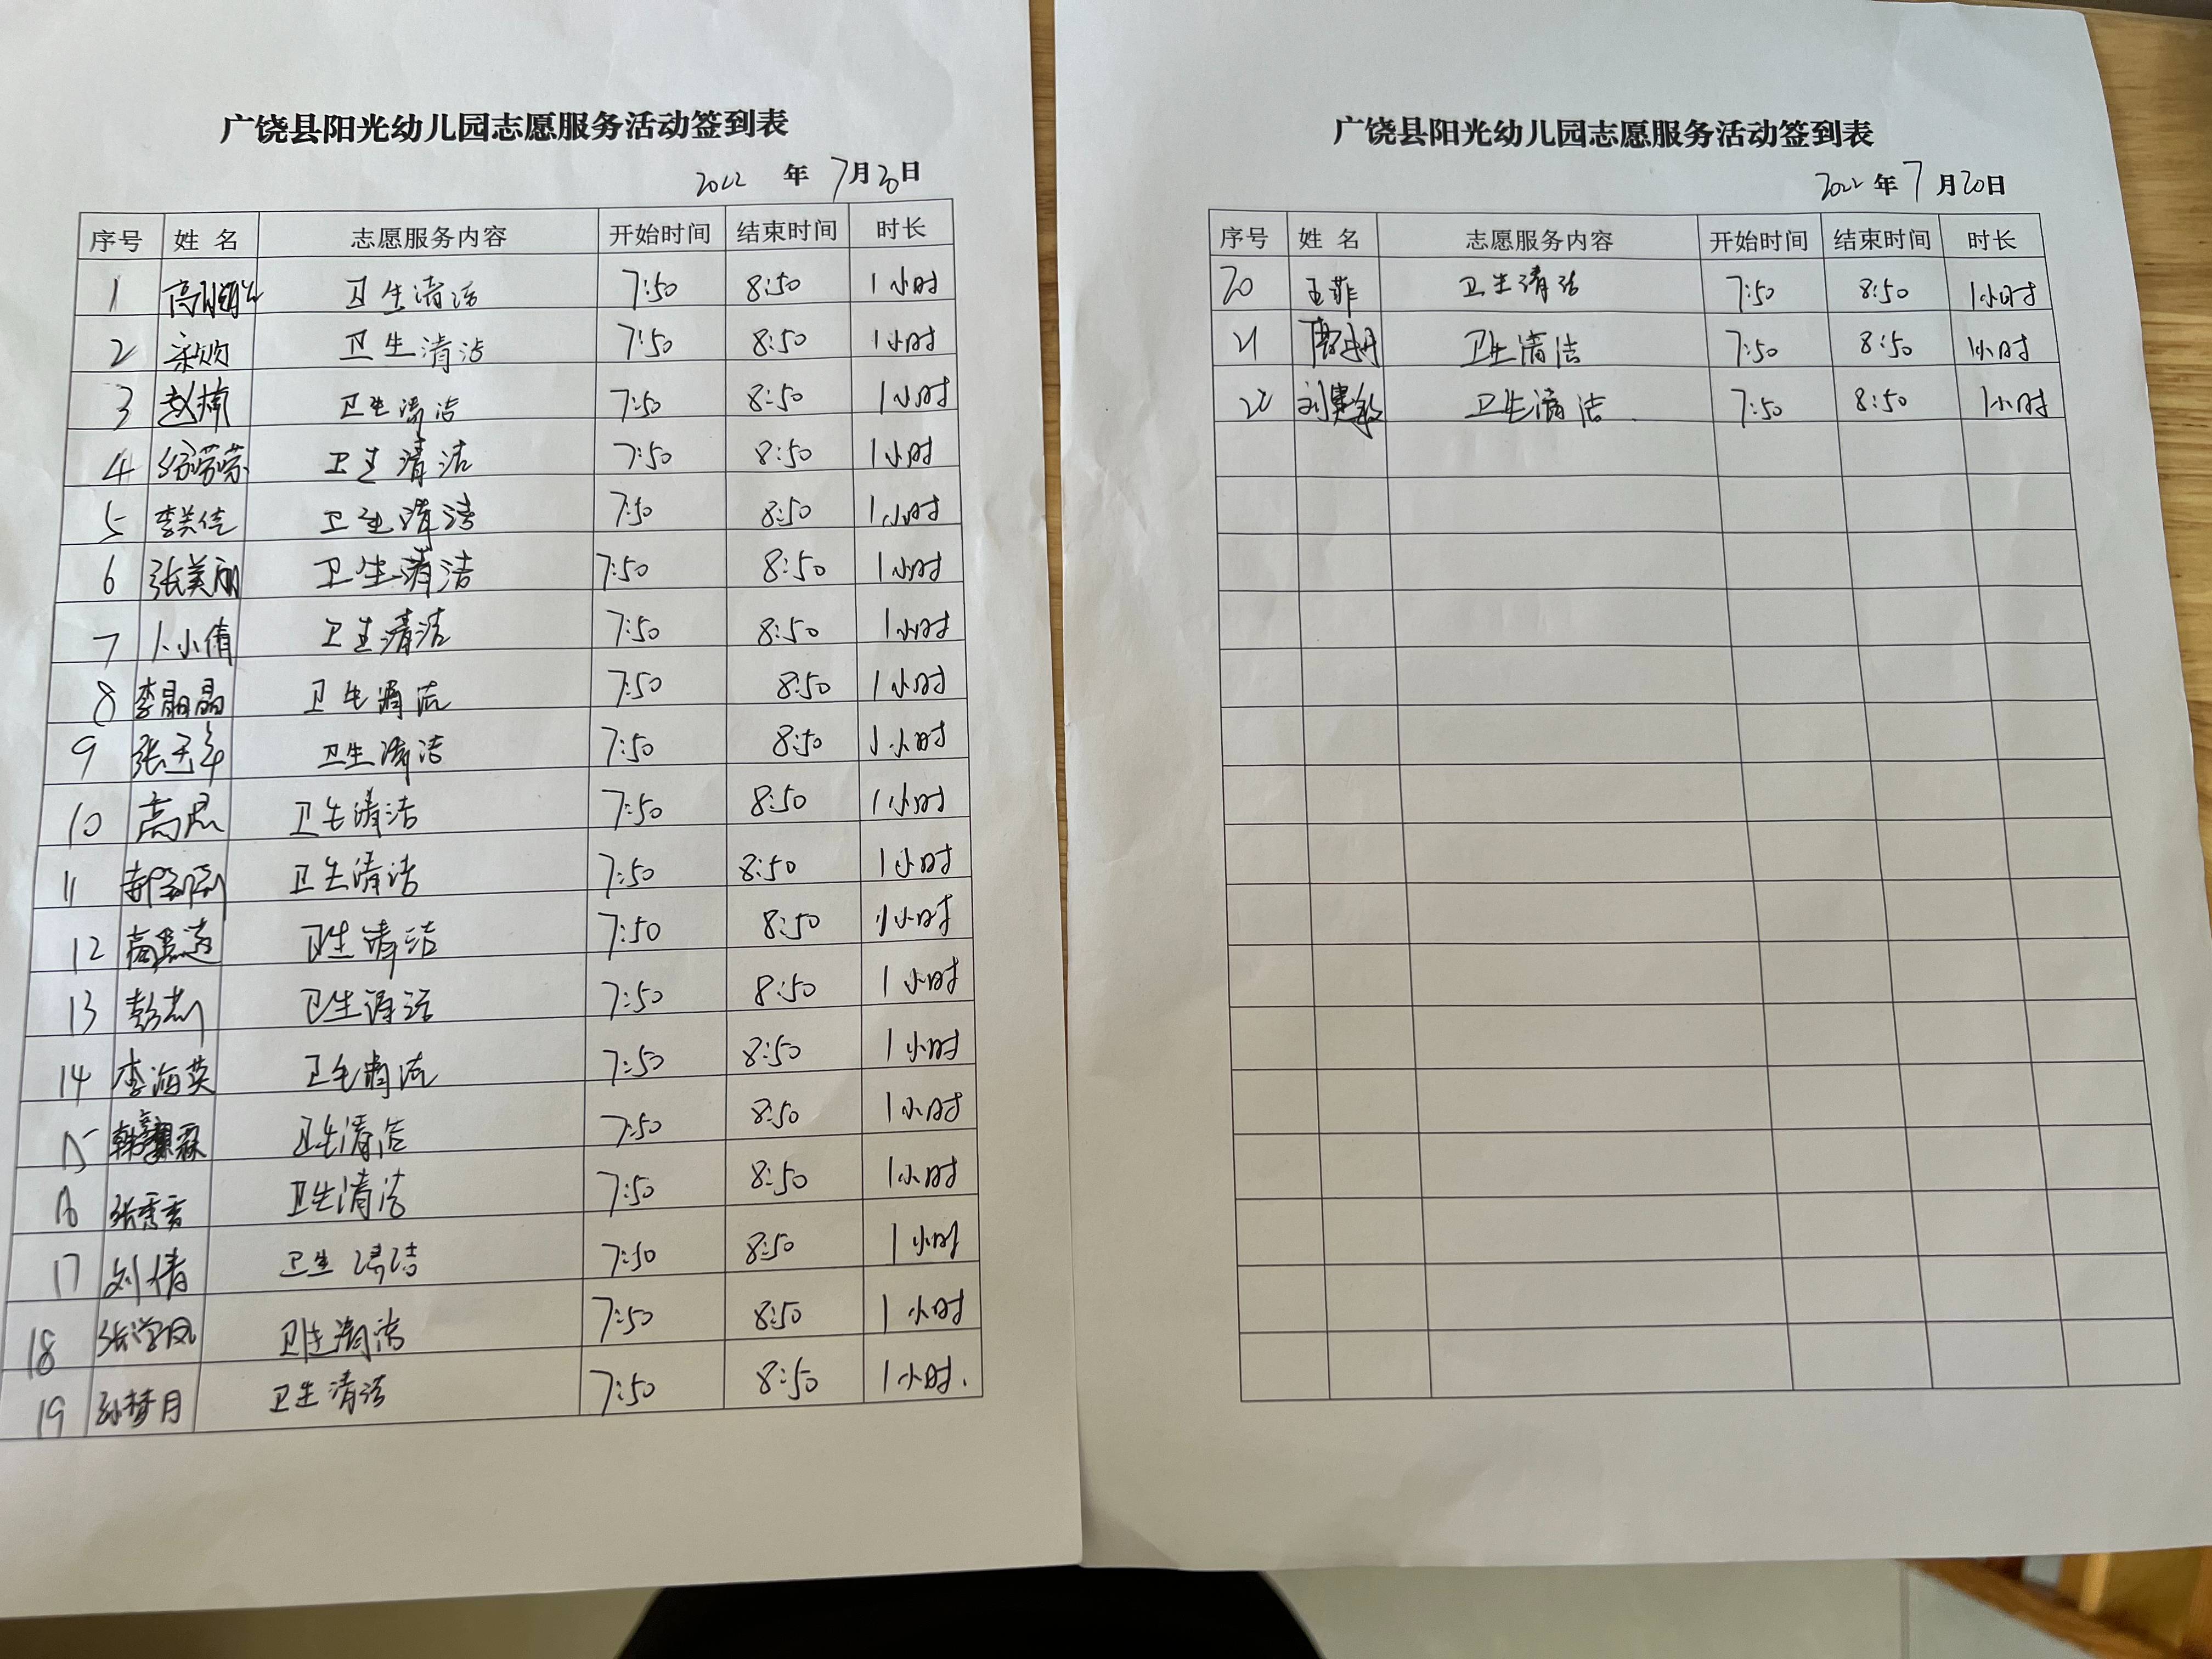 广饶县阳光幼儿园志愿服务活动签到表
2022 年 7月20日
序号 姓 名 志愿服务内容 开始时间 结束时间 时长
1 卫生清洁 7:50 8:50 1小时
2 卫生清洁 7:50 8:50 1小时
3 赵楠 卫生清洁 7:50 8:50 1小时
4 卫生清洁 7:50 8:50 1小时
5 李美佳 卫生清洁 7:50 8:50 1小时
6 张美丽 卫生清洁 7:50 8:50 1小时
7 卜小倩 卫生清洁 7:50 8:50 1小时
8 李晶晶 卫生清洁 7:50 8:50 1小时
9 卫生清洁 7:50 8:50 1小时
10 卫生清洁 7:50 8:50 1小时
11 卫生清洁 7:50 8:50 1小时
12 卫生清洁 7:50 8:50 1小时
13 卫生清洁 7:50 8:50 1小时
14 李海英 卫生清洁 7:50 8:50 1小时
15 卫生清洁 7:50 8:50 1小时
16 卫生清洁 7:50 8:50 1小时
17 刘倩 卫生清洁 7:50 8:50 1小时
18 张学凤 卫生清洁 7:50 8:50 1小时
19 孙梦月 卫生清洁 7:50 8:50 1小时.
广饶县阳光幼儿园志愿服务活动签到表
2022 年 7 月20日
序号 姓 名 志愿服务内容 开始时间 结束时间 时长
20 王菲 卫生清洁 7:50 8:50 1小时
21 卫生清洁 7:50 8:50 1小时
22 卫生清洁 7:50 8:50 1小时